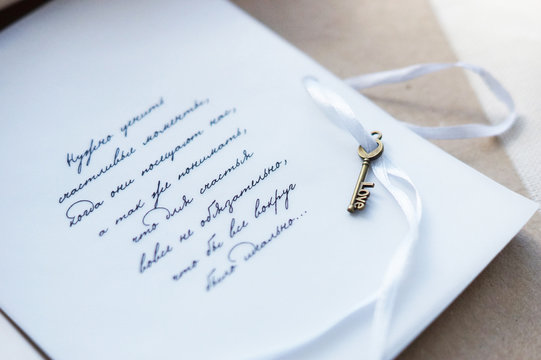 Нужно ценить
счастливые моменты,
когда они посещают нас,
а так же понимать,
что для счастья
вовсе не обязательно,
что бы все вокруг
было идеально...
Love